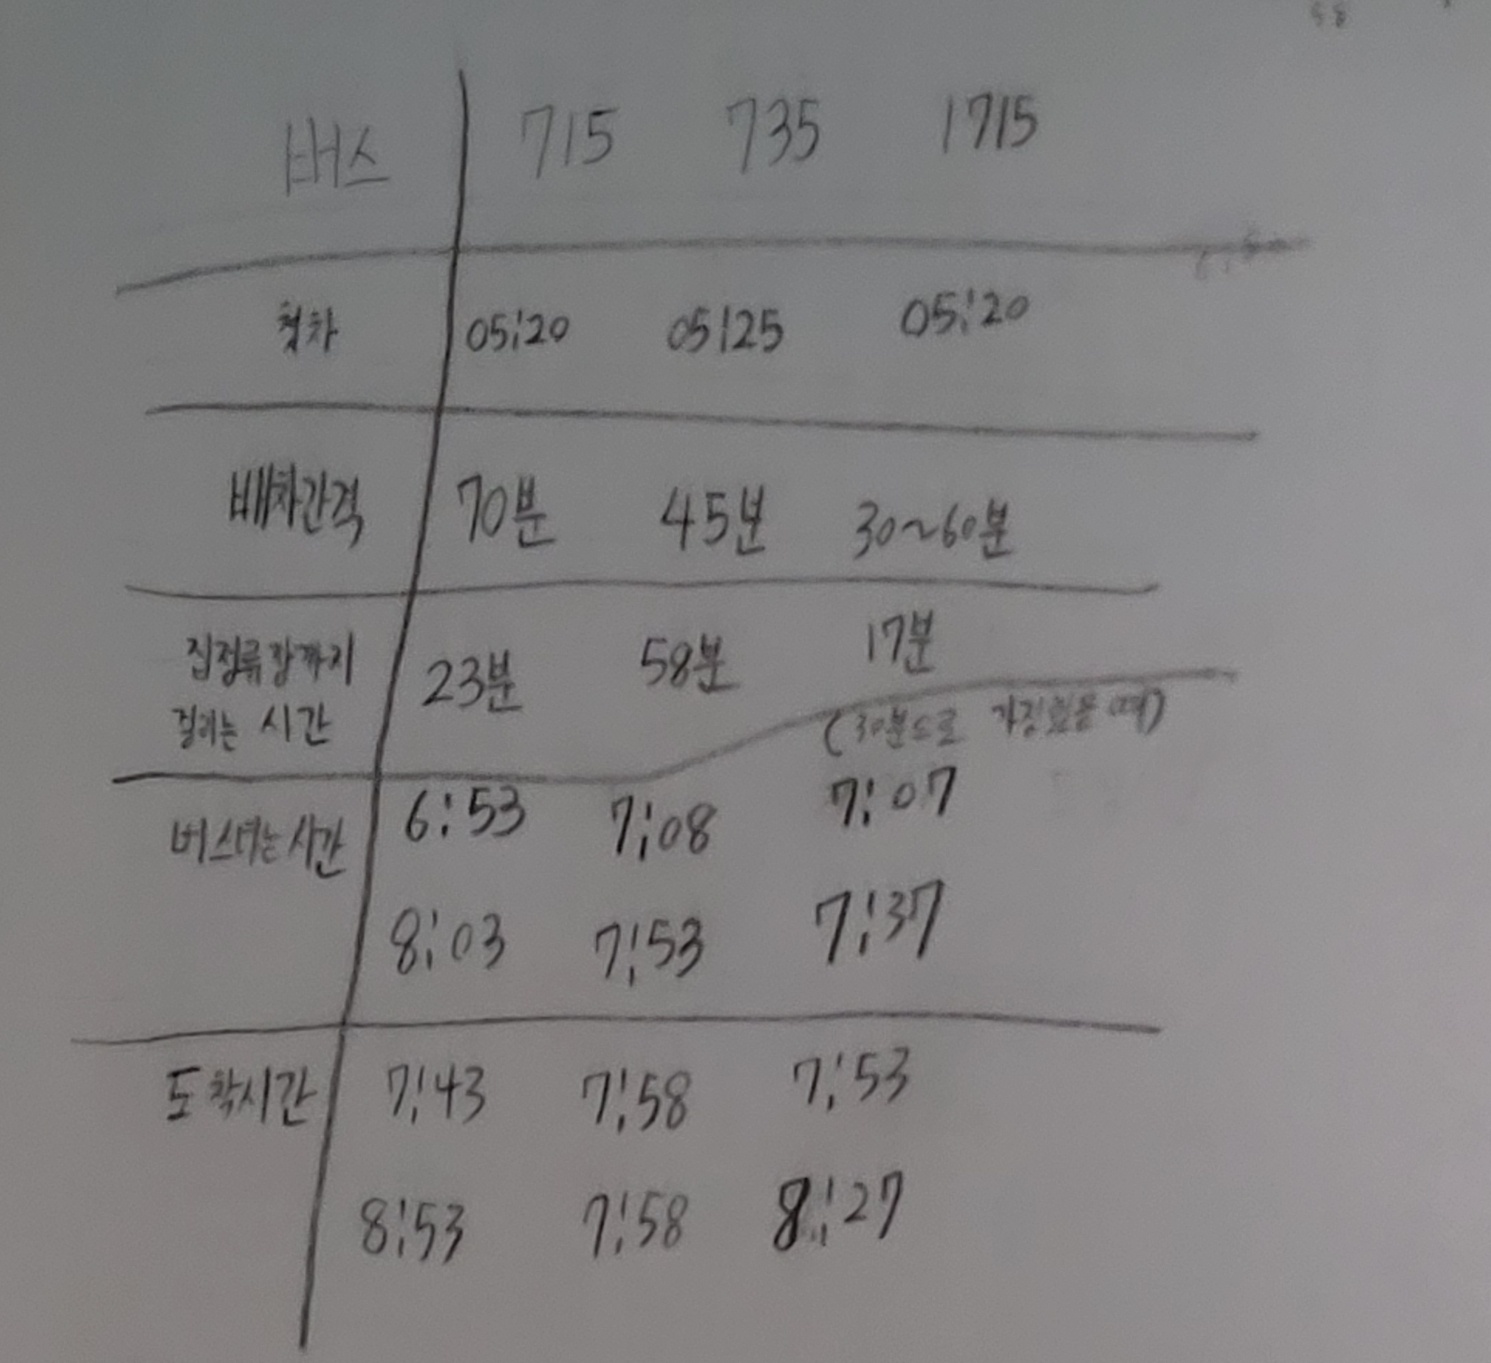 버스 715 735 1715
첫차 05:20 05:25 05:20
배차간격 70분 45분 30~60분
집정류장까지 23분 58분 17분
걸리는 시간
(30분으로 가정했을 때)
버스타는 시간 6:53 7:08 7:07
8:03 7:53 7:37
도착시간 7:43 7:58 7:53
8:53 7:58 8:27